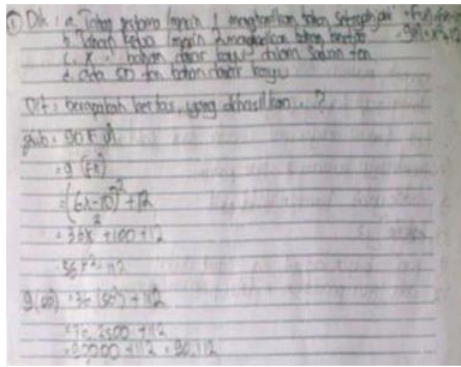 ① Dik : a. Tahap pertama (mesin 1 menghasilkan bahan setengah jadi
b. Tahap kedua (mesin 2 menghasilkan bahan kertas
c. x : bahan dasar kayu dalam satuan ton
d. ada 50 ton bahan dasar kayu
Dit : berapakah kertas yang dihasilkan . . ?
Jwb : gof
= g (fx)
= (6x-10)² + 12
= 36x² + 100 + 12
= 36x² + 112
g(50) = 36 (50²) + 112
2500 + 112
= 90000 + 112 = 90.112